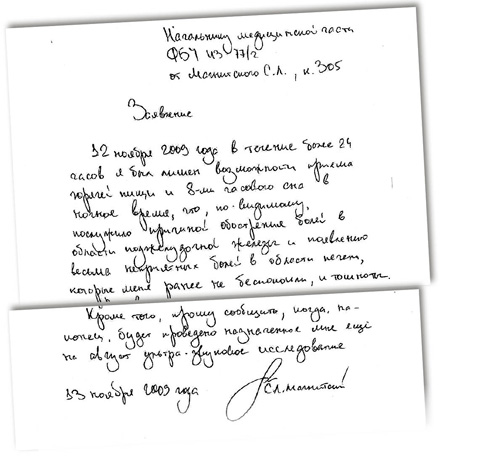 Начальнику медицинской части
ФБУ ИЗ 77/2
от Магнитского С.Л., к. 305
Заявление
12 ноября 2009 года в течение более 24
часов я был лишен возможности приема
горячей пищи и 8-ми часового сна в
ночное время, что, по-видимому,
послужило причиной обострения болей в
области поджелудочной железы и появлению
весьма неприятных болей в области печени,
которые меня ранее не беспокоили, и тошноты.
Кроме того, прошу сообщить, когда, на-
конец, будет проведено назначенное мне ещё
на август ультра-звуковое исследование
13 ноября 2009 года
С.Л. Магнитский